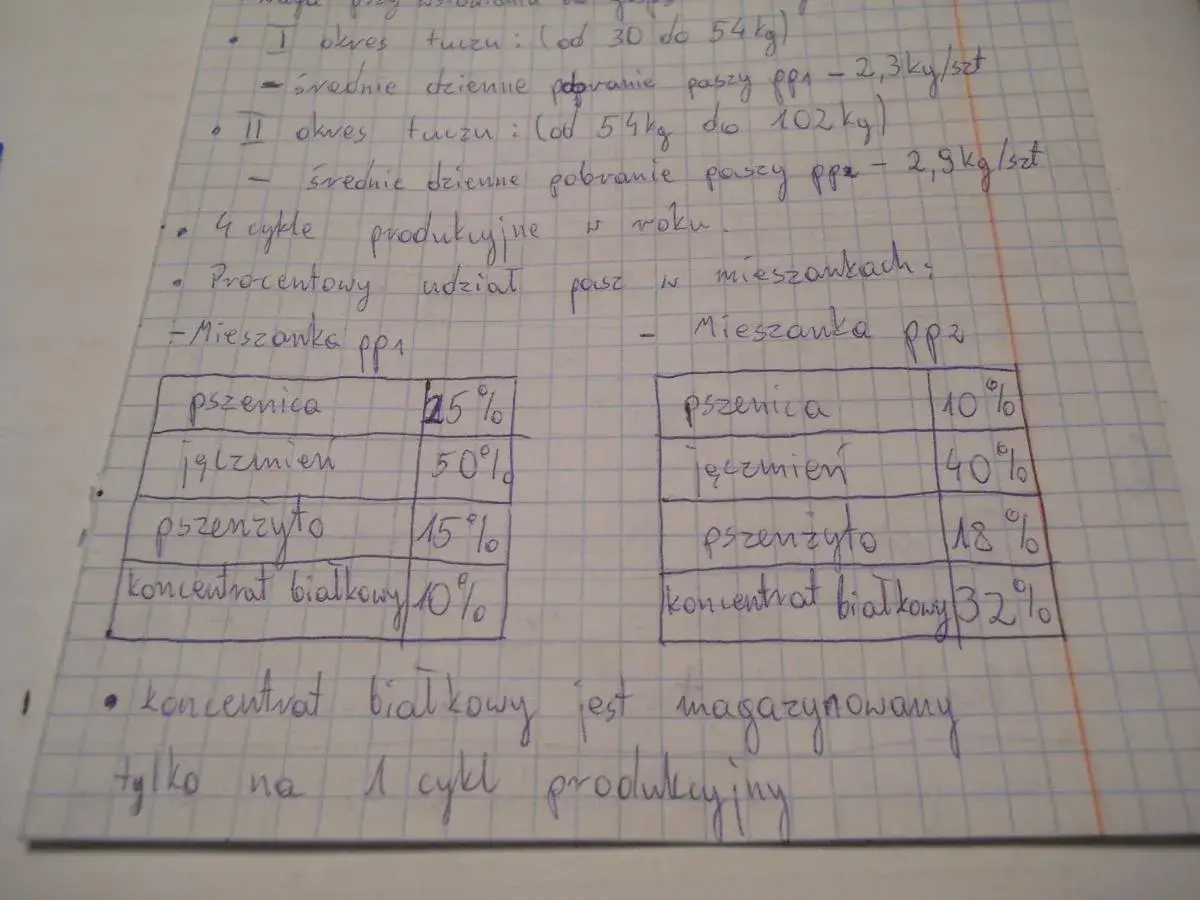 wadze przy wstawianiu do
• I okres tuczu: (od 30 do 54kg)
- średnie dzienne pobranie paszy pp1 - 2,3kg/szt
• II okres tuczu: (od 54kg do 102kg)
- średnie dzienne pobranie paszy pp2 - 2,9kg/szt
• 4 cykle produkcyjne w roku.
• Procentowy udział pasz w mieszankach:
- Mieszanka pp1 - Mieszanka pp2
pszenica 25% pszenica 10%
jęczmień 50% jęczmień 40%
pszenżyto 15% pszenżyto 18%
koncentrat białkowy 10% koncentrat białkowy 32%
• koncentrat białkowy jest magazynowany
tylko na 1 cykl produkcyjny